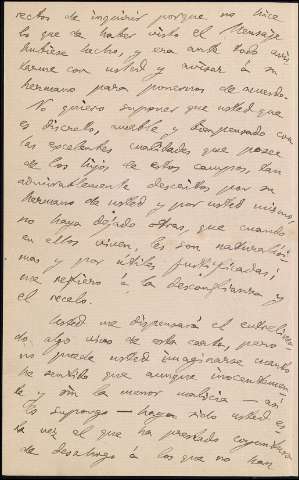 rectos de inquirir porque no hice
lo que de haber visto el Mensaje
hubiese hecho, y era ante todo avis
tarme con usted y avisar á su
hermano para ponernos de acuerdo.
No quiero suponer que usted que
es discreto, amable y bienpensado con
las excelentes cualidades que posee
de los hijos de estos campos, tan
admirablemente descritos por su
hermano de usted y por usted mismo,
no haya dejado otras, que cuando
en ellos viven, les son naturalísi-
mas y por útiles justificadas;
me refiero á la desconfianza y
el recelo.
Usted me dispensará el entrelinea-
do, algo vivo de esta carta, pero
no puede usted imaginarse cuanto
he sentido que aunque inocentemen-
te y sin la menor malicia — así
lo supongo — haya sido usted es
la vez el que ha prestado coyuntura
de desahogo á los que no han